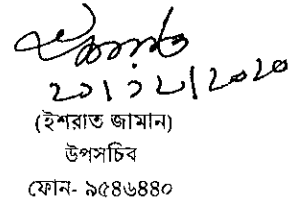 ইশরাত
২০১২২০২০
(ইশরাত জামান)
উপসচিব
ফোন- ৯৫৪৬৪৪০